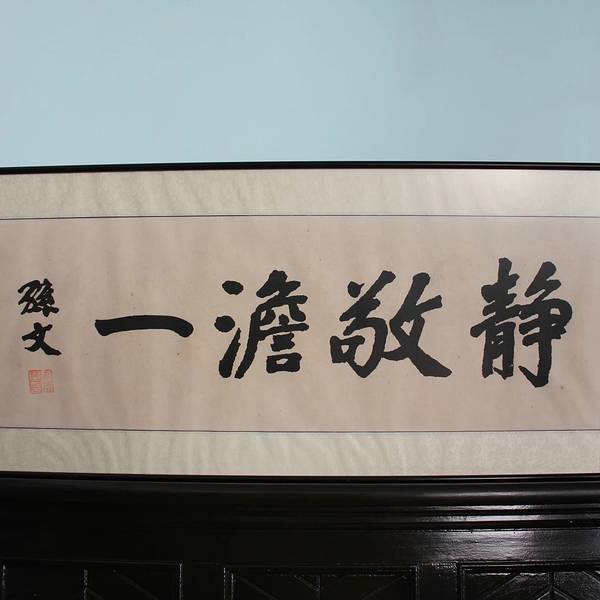 静敬澹一
孫文